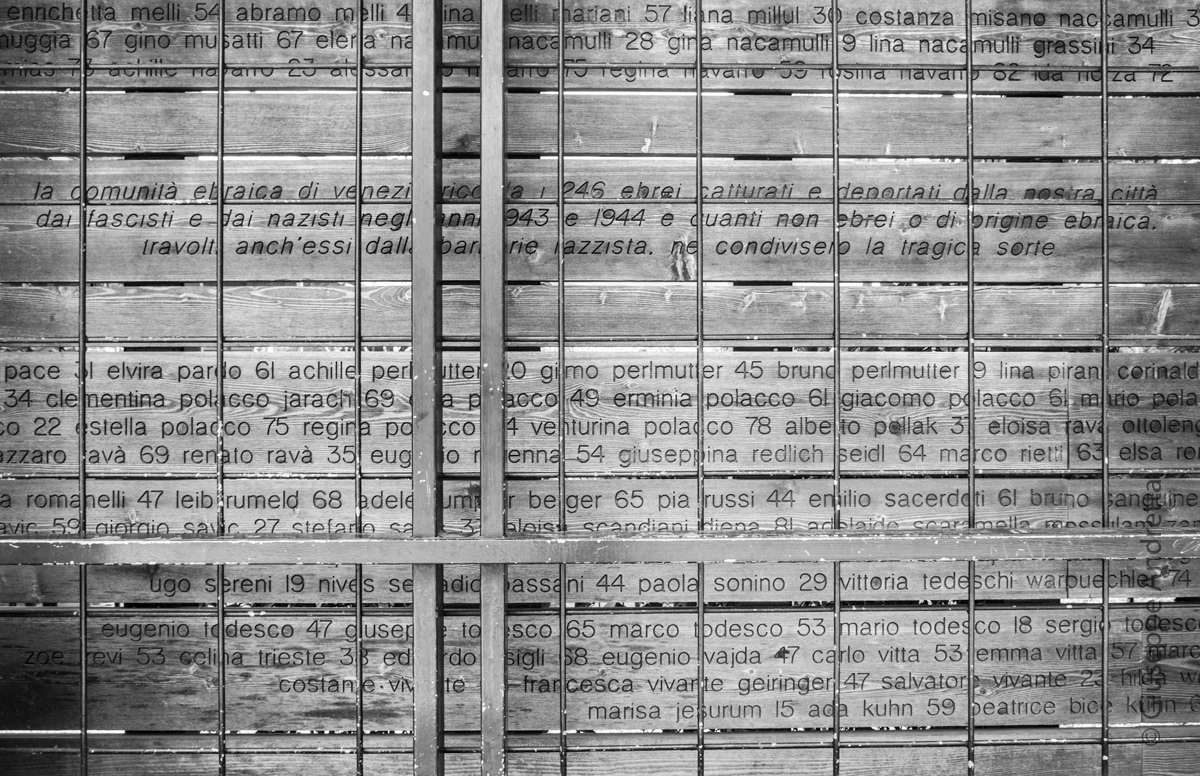 enrichetta melli 54 abramo melli 4 mariani 57 liana millul 30 costanza misano naccamulli
muggia 67 gino musatti 67 elena nacamulli 28 gina nacamulli 9 lina nacamulli grassini 34
achille navarro 23 navarro 75 regina navarro 59 rosina navarro 82 ida norza 72
la comunità ebraica di venezia ricorda i 246 ebrei catturati e deportati dalla nostra città
dai fascisti e dai nazisti negli anni 1943 e 1944 e quanti non ebrei o di origine ebraica,
travolti anch'essi dalla barbarie razzista, ne condivisero la tragica sorte
pace 31 elvira pardo 61 achille perlmutter 20 gimo perlmutter 45 bruno perlmutter 9 lina pirani corinald
34 clementina polacco jarach 69 polacco 49 erminia polacco 61 giacomo polacco 61 mario pola
co 22 estella polacco 75 regina polacco 4 venturina polacco 78 alberto pollak 37 eloisa ravà ottoleng
azzaro ravà 69 renato ravà 35 eugenio ravenna 54 giuseppina redlich seidl 64 marco rietti 63 elsa ro
a romanelli 47 leib rumeld 68 adele rumper berger 65 pia russi 44 emilio sacerdoti 61 bruno sanguine
savic 59 giorgio savic 27 stefano eloisa scandiani diena 81 adelaide scaramella messulam
ugo sereni 19 nives bassani 44 paola sonino 29 vittoria tedeschi warbuechler 74
eugenio todesco 47 giuseppe todesco 65 marco todesco 53 mario todesco 18 sergio todesco
zoe trevi 53 celina trieste 38 edoardo usigli 68 eugenio vajda 47 carlo vitta 53 emma vitta 57 marc
costante vivante francesca vivante geiringer 47 salvatore vivante 23 hilda
marisa jesurum 15 ada kuhn 59 beatrice bice kuhn
© Giuseppe Andretta